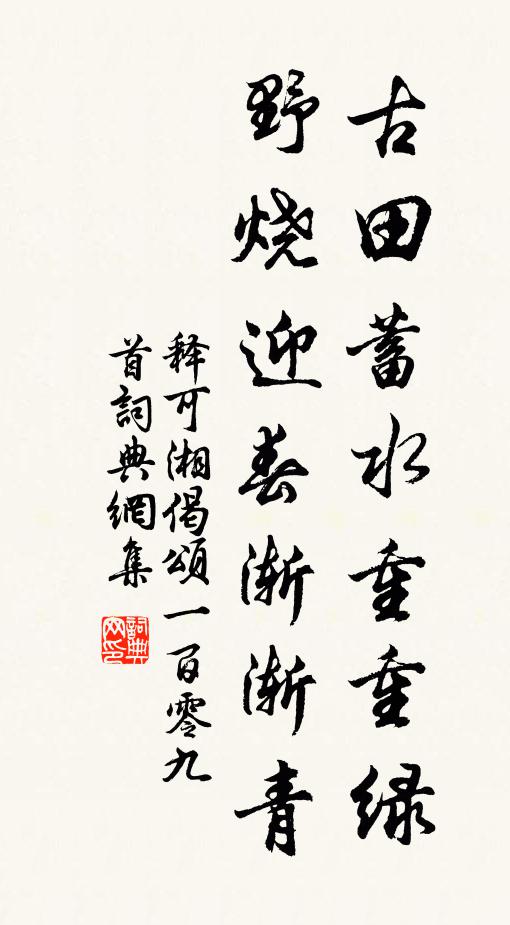 古田蓄水重重绿
野烧迎春渐渐青
释可湘偈頌一百零九
首詞典網集
詞典
网印